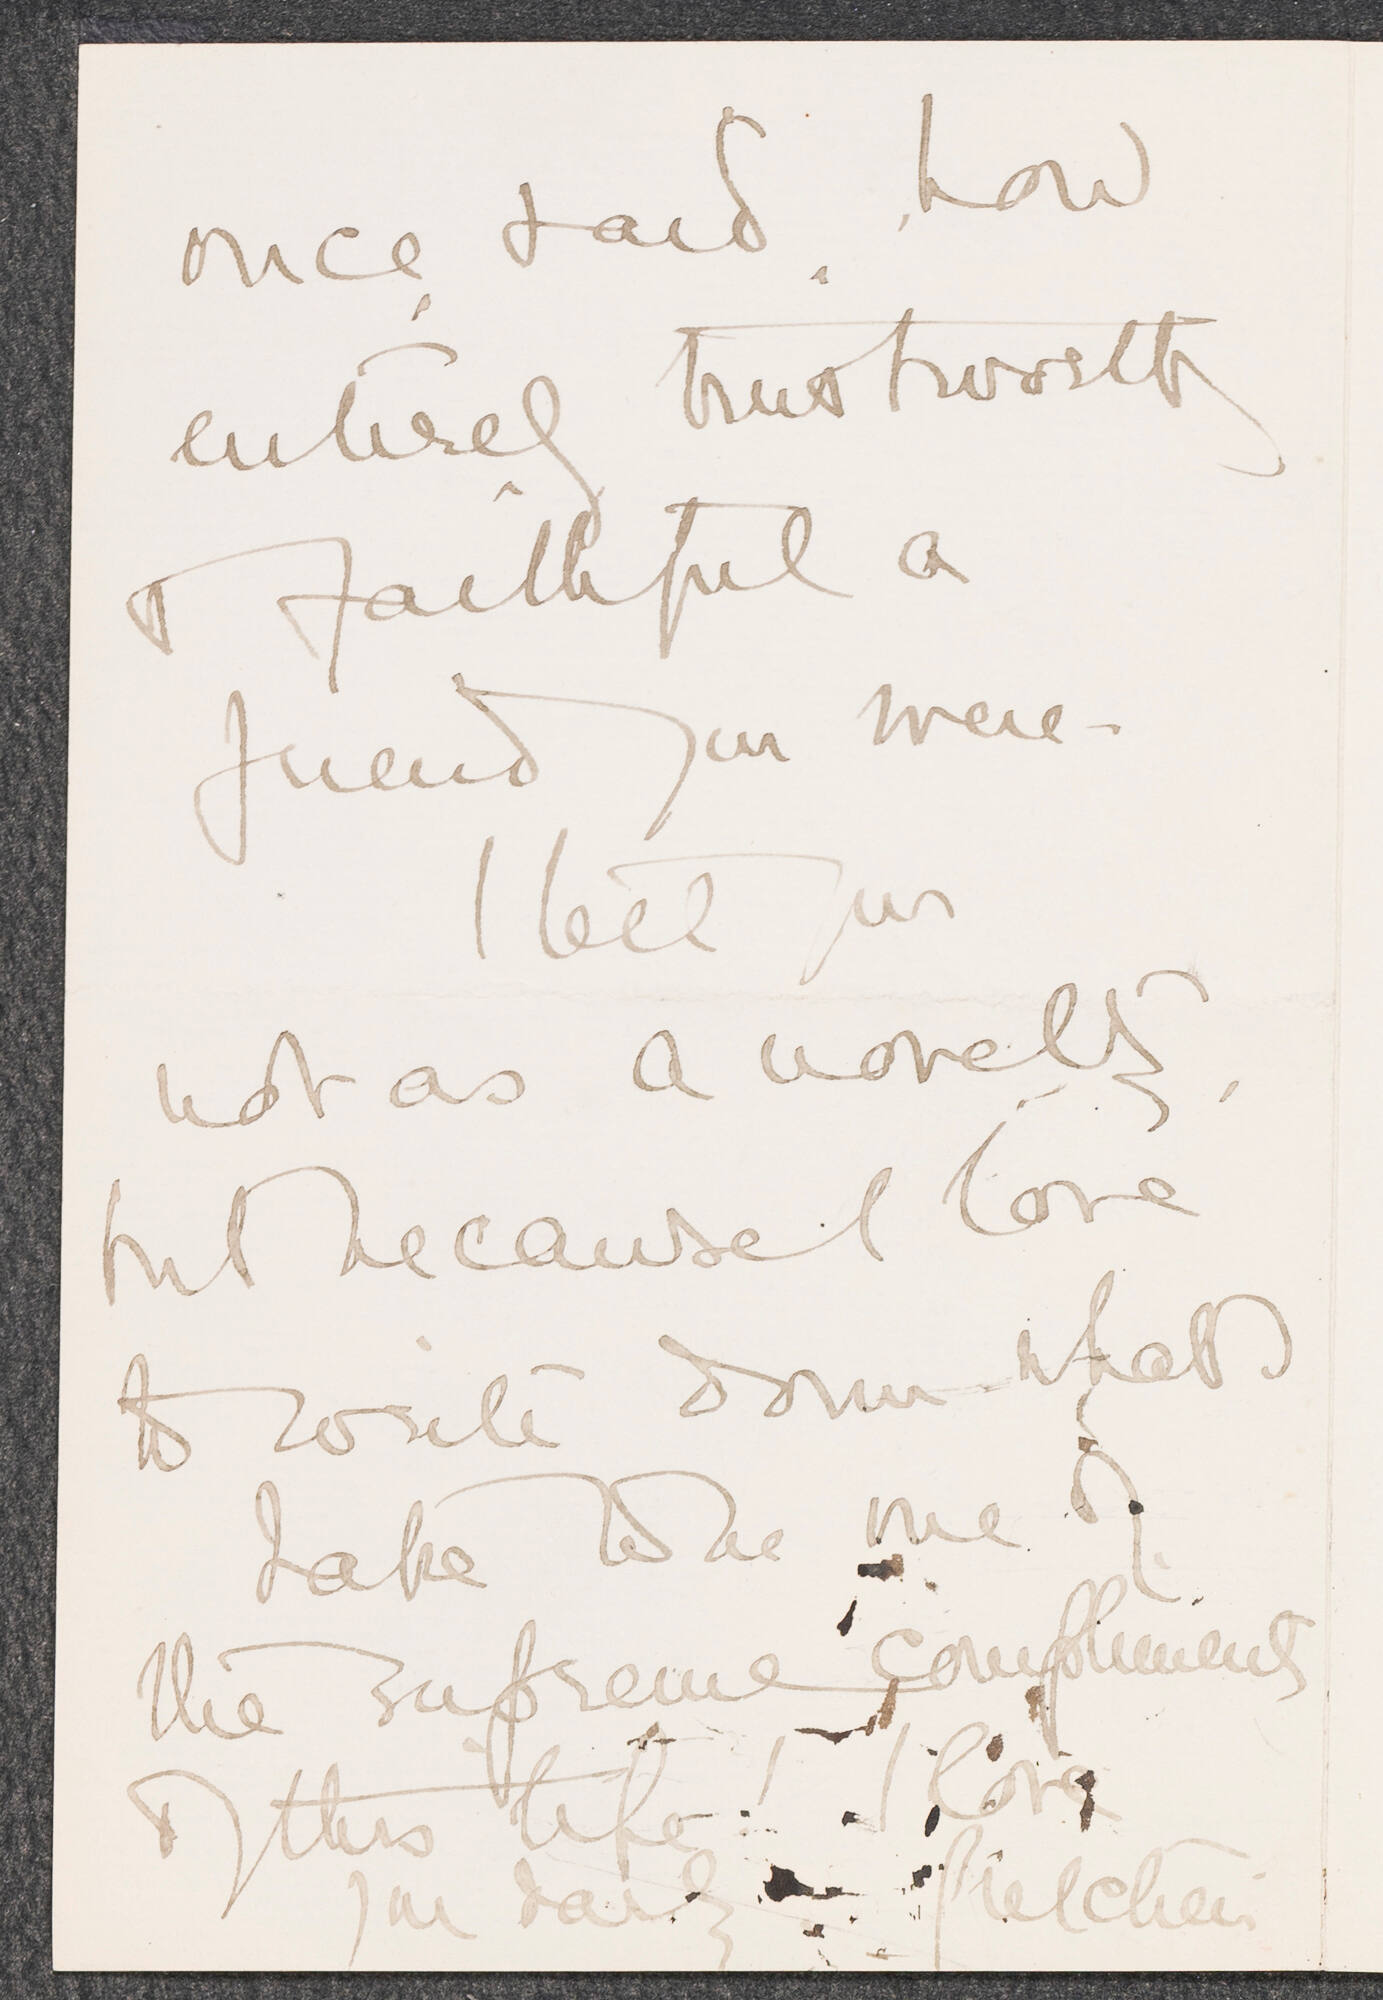 once, said, how
entirely trustworthy
& faithful a
friend you were -
I tell you
not as a novelty,
but because I love
to write down what I
take to be one of
the supreme compliments
of this life! I love
you dark